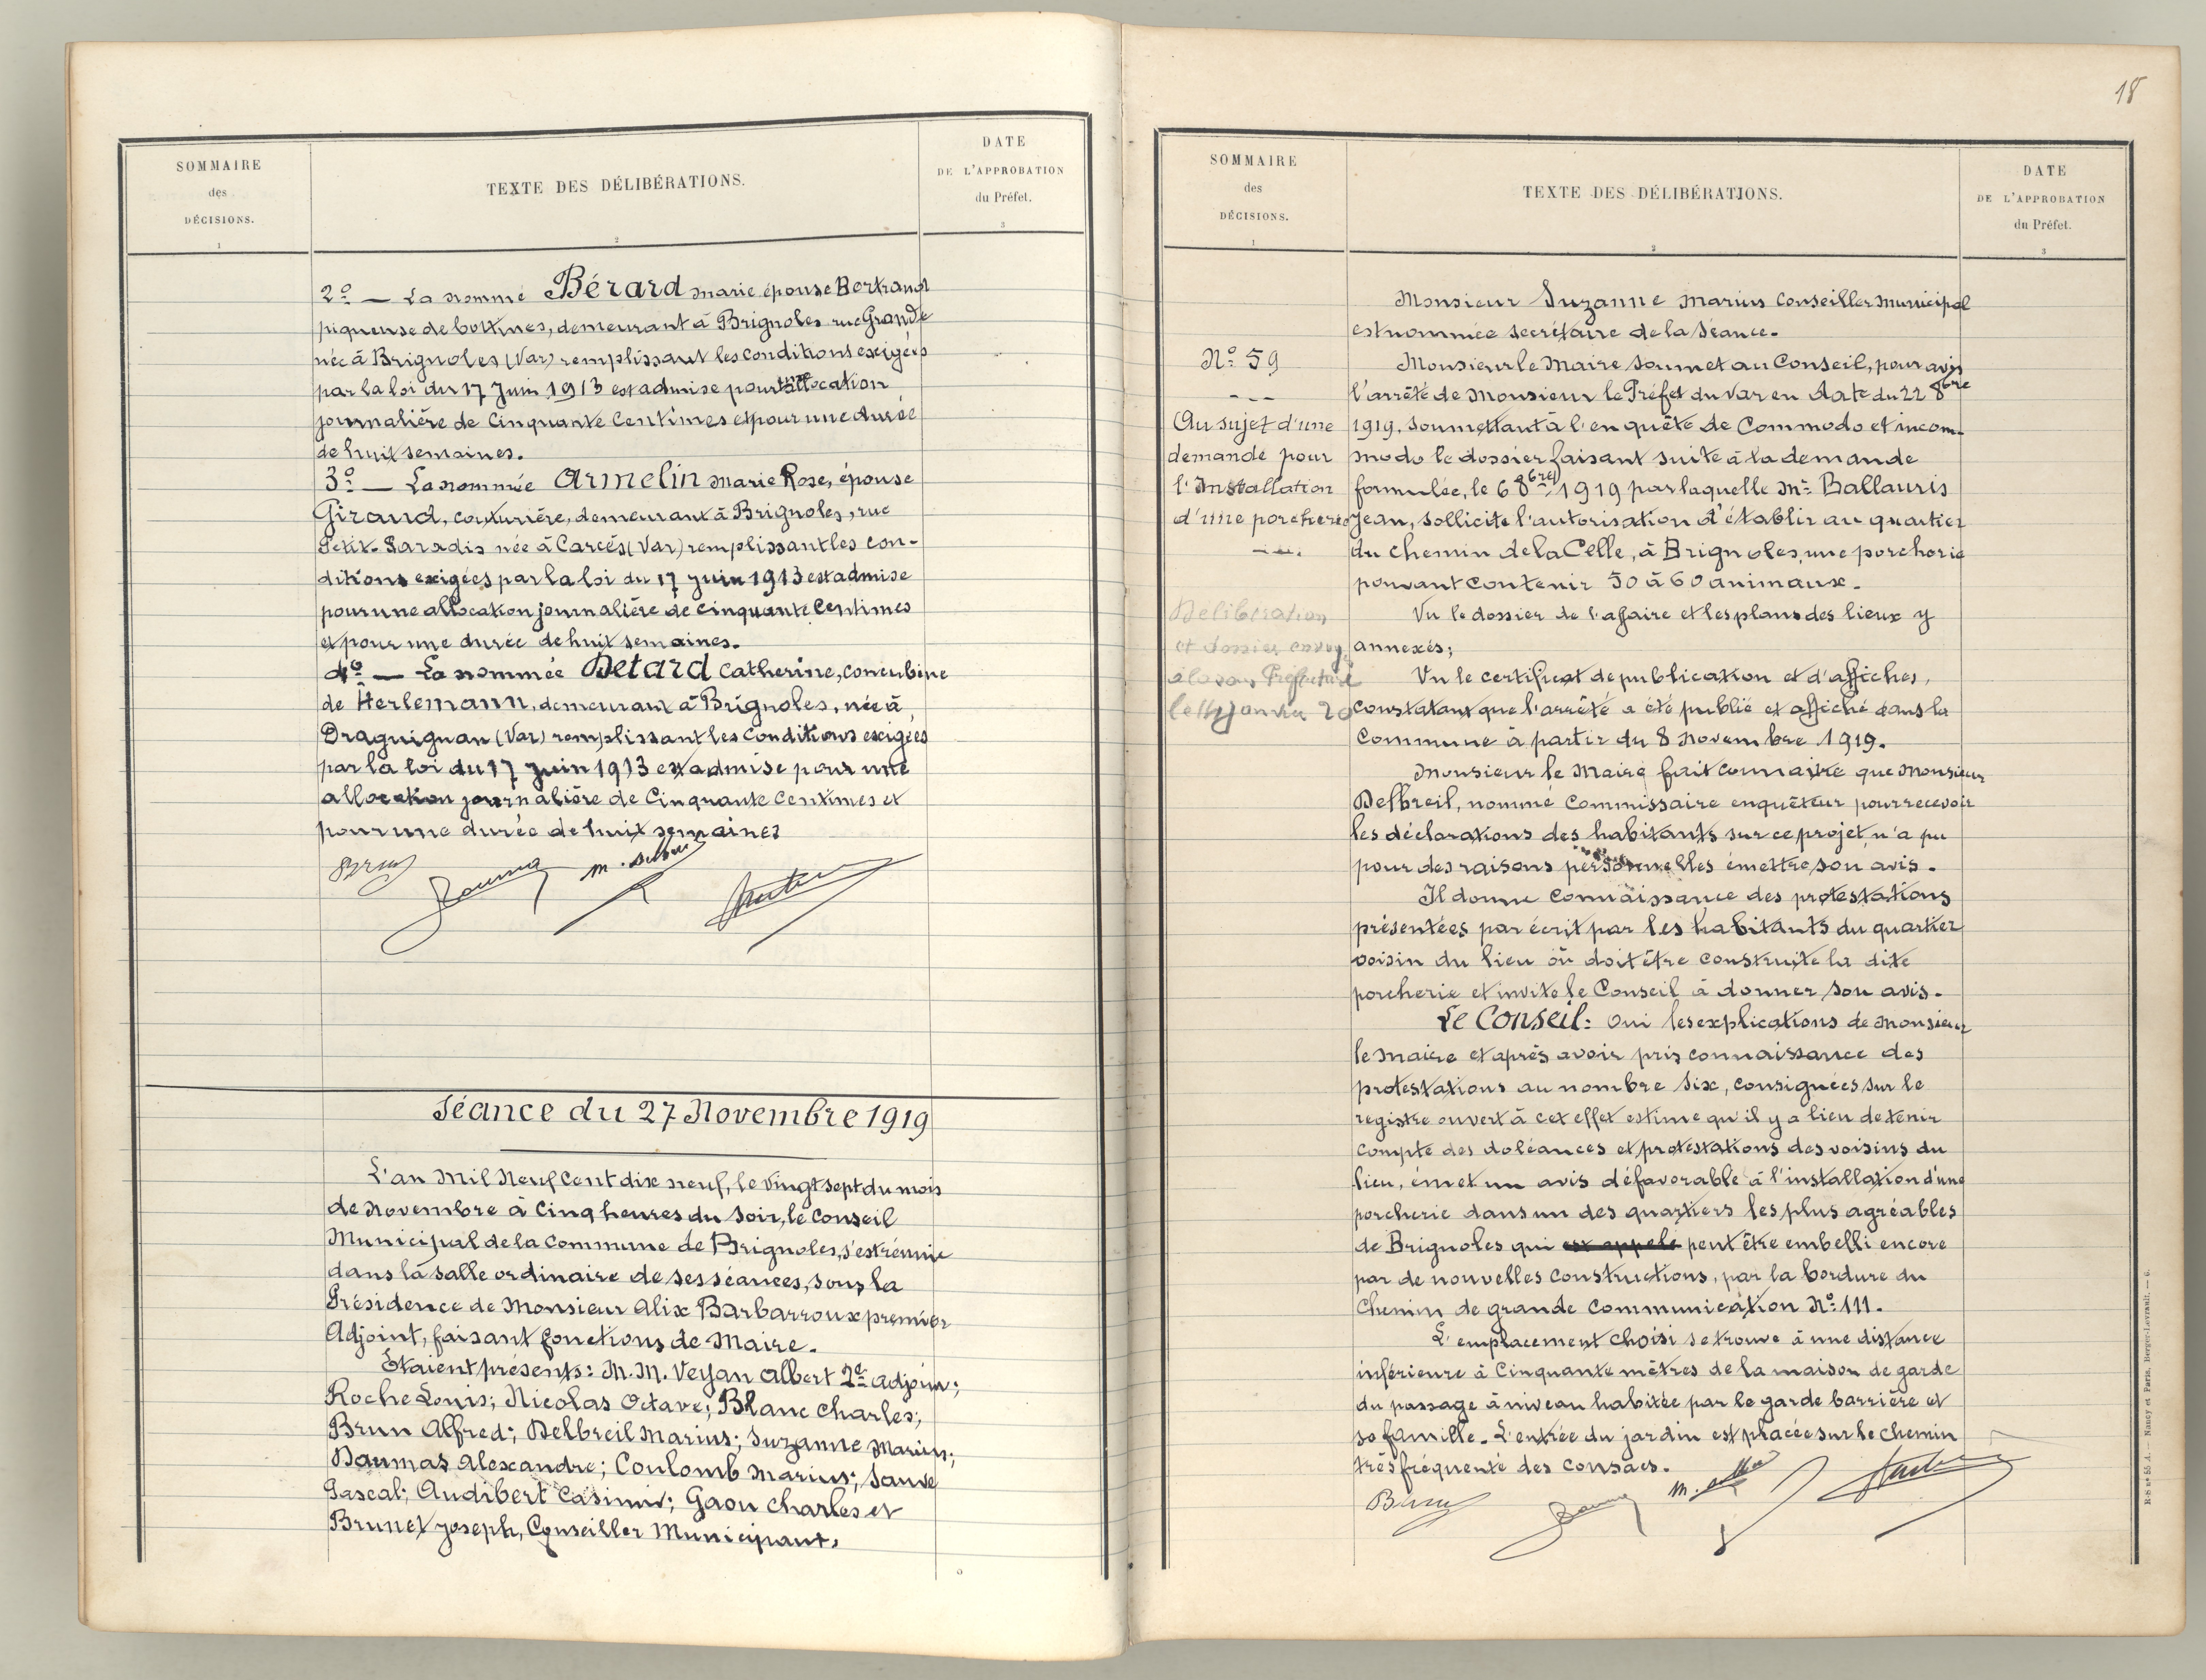 SOMMAIRE
des
DÉCISIONS.
1
TEXTE DES DÉLIBÉRATIONS.
2
DATE
DE L'APPROBATION
du Préfet.
3
2º — La nommé Bérard marie épouse Bertrand
piqueuse de bottines, demeurant à Brignoles rue Grande
née à Brignoles (Var) remplissant les conditions exigées
par la loi du 17 Juin 1913 est admise pour une allocation
journalière de Cinquante Centimes et pour une durée
de huit semaines.
3º — La nommée Armelin marie Rose, épouse
Giraud, couturière, demeurant à Brignoles, rue
Petit-Paradis née à Carcès (Var) remplissant les con-
ditions exigées par la loi du 17 juin 1913 est admise
pour une allocation journalière de cinquante Centimes
et pour une durée de huit semaines.
4º — La nommée Détard Catherine, concubine
de Herlemann, demeurant à Brignoles, née à
Draguignan (Var) remplissant les Conditions exigées
par la loi du 17 juin 1913 est admise pour une
allocation journalière de Cinquante Centimes et
pour une durée de huit semaines
Séance du 27 Novembre 1919
L'an Mil Neuf Cent dix neuf, le Vingt sept du mois
de Novembre à Cinq heures du Soir, le Conseil
Municipal de la Commune de Brignoles, s'est réunie
dans la salle ordinaire de ses séances, sous la
Présidence de Monsieur Alix Barbarroux premier
Adjoint, faisant fonctions de Maire.
Etaient présents: M. M. Veyan Albert 2e adjoint;
Roche Louis; Nicolas Octave; Blanc Charles;
Brun Alfred; Delbreil Marius; Suzanne Marius;
Daumas Alexandre; Coulomb Marius; Sauve
Pascal; Audibert Casimir; Gaou Charles et
Brunet Joseph, Conseiller Municipaux.
18
SOMMAIRE
des
DÉCISIONS.
1
TEXTE DES DÉLIBÉRATIONS.
2
DATE
DE L'APPROBATION
du Préfet.
3
Nº 59
Au sujet d'une
demande pour
l'Installation
d'une porcherie
Délibération
et dossier envoy.
à la sous Préfecture
le 14 janvier 20
Monsieur Suzanne Marius Conseiller Municipal
est nommée secrétaire de la Séance.
Monsieur le Maire Soumet au Conseil, pour avis
l'arrêté de Monsieur le Préfet du Var en date du 22 8bre
1919, soumettant à l'enquête de Commodo et incom-
modo le dossier faisant suite à la demande
formulée, le 6 8bre 1919 par laquelle Mr Ballauris
Jean, sollicite l'autorisation d'établir au quartier
du chemin de la Celle, à Brignoles, une porcherie
pouvant contenir 50 à 60 animaux.
Vu le dossier de l'affaire et les plans des lieux y
annexés;
Vu le certificat de publication et d'affiches,
Constatant que l'arrêté a été publié et affiché dans la
Commune à partir du 8 Novembre 1919.
Monsieur le Maire fait connaître que Monsieur
Delbreil, nommé Commissaire enquêteur pour recevoir
les déclarations des habitants sur ce projet, n'a pu
pour des raisons personnelles émettre son avis.
Il donne Connaissance des protestations
présentées par écrit par les habitants du quartier
voisin du lieu où doit être construite la dite
porcherie et invite le Conseil à donner son avis.
Le Conseil: Oui les explications de Monsieur
le Maire et après avoir pris connaissance des
protestations au nombre Six, consignées sur le
registre ouvert à cet effet estime qu'il y a lieu de tenir
compte des doléances et protestations des voisins du
lieu, émet un avis défavorable à l'installation d'une
porcherie dans un des quartiers les plus agréables
de Brignoles qui est appelé peut être embelli encore
par de nouvelles constructions, par la bordure du
Chemin de grande Communication Nº 111.
L'emplacement choisi se trouve à une distance
inférieure à Cinquante mètres de la maison de garde
du passage à niveau habitée par le garde barrière et
sa famille. L'entrée du jardin est placée sur le chemin
très fréquente des Consacs.
R-S nº 55 A. — Nancy et Paris, Berger-Levrault. — 6.